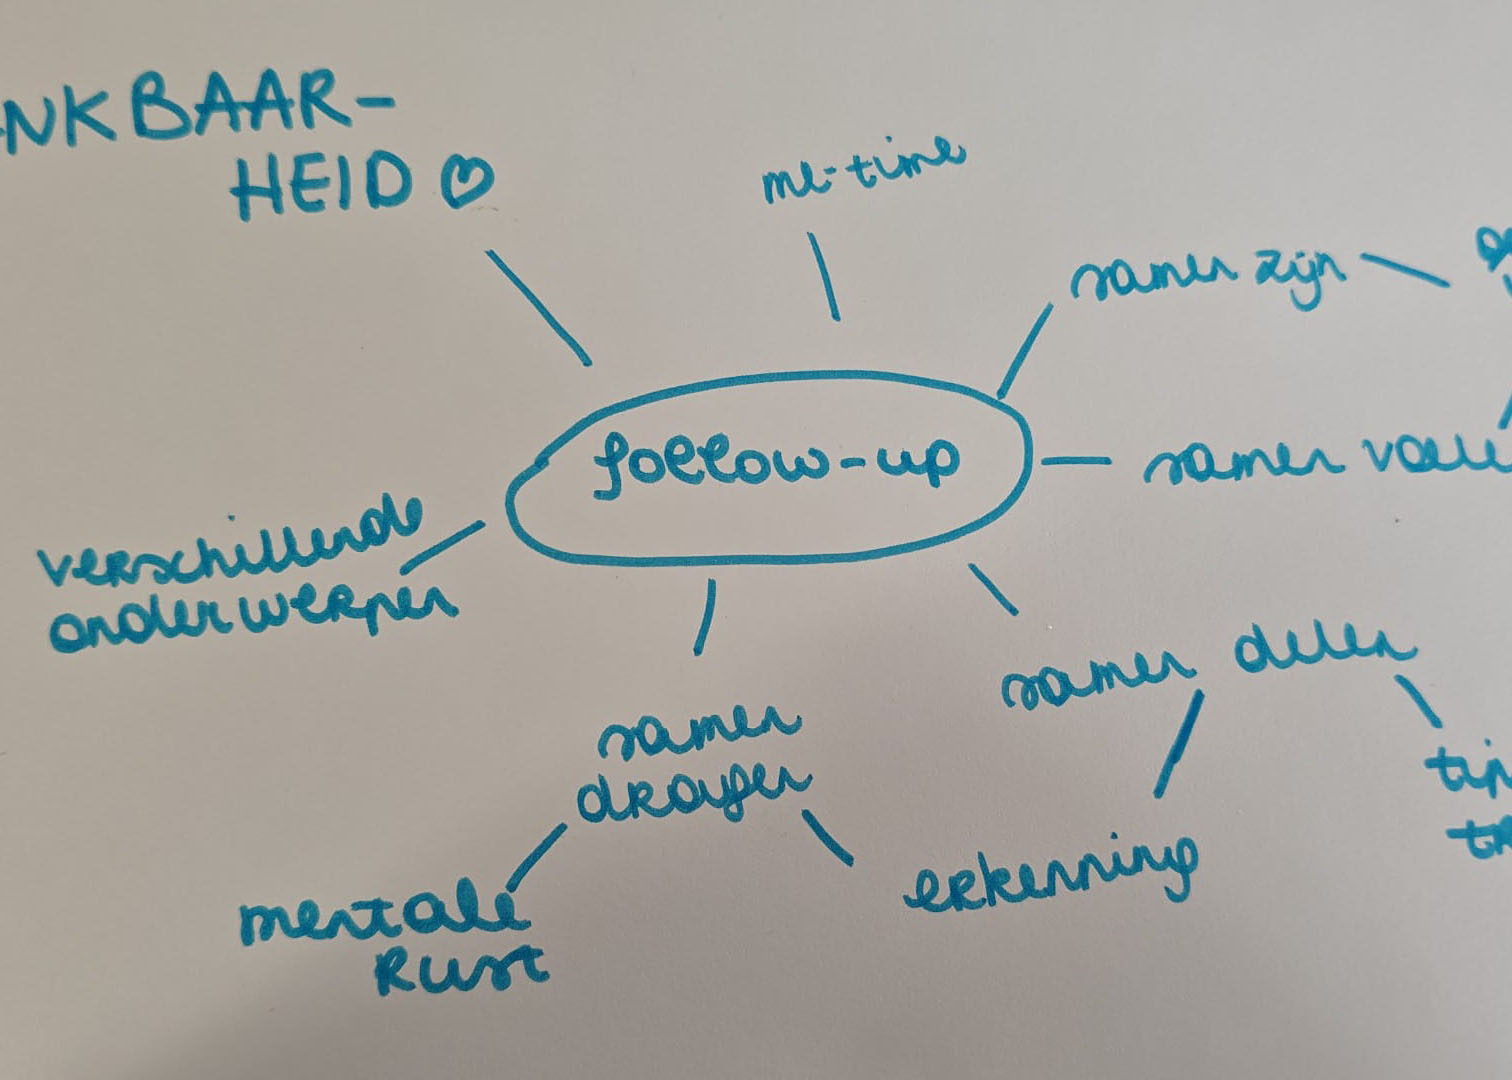 NKBAAR-
HEID
me-time
samen zijn
follow-up
samen
verschillende
onderwerpen
samen delen
samen
dragen
erkenning
mentale
rust